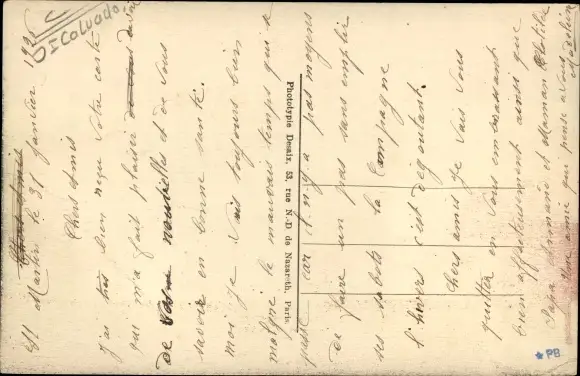 Calvados
St Martin le 31 Janvier 193
Chers Amis
J'ai très bien reçu votre carte
qui m'a fait plaisir
de nouvelles et de vous
savoir en bonne santé.
moi je vais toujours bien
malgré le mauvais temps qui se
passe car il n'y a pas moyens
de faire un pas sans emplir
ses sabots la Campagne
l'hivers c'est dégoutant.
chers amis je vais vous
quitter en vous embrassant
bien affectueusement ainsi que
Papa Armand et Maman Clotilde
Une amie qui pense a vous
Madeleine
Phototypie Desaix, 53, rue N.-D de Nazareth, Paris.
PB